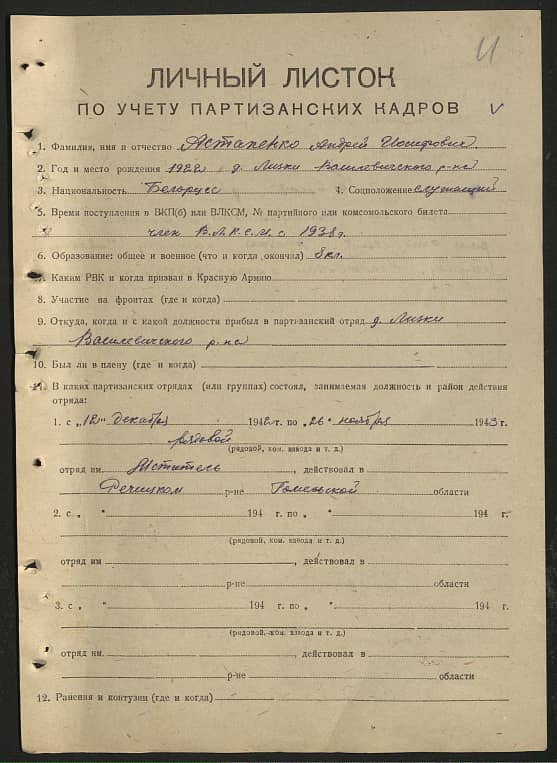 И
ЛИЧНЫЙ ЛИСТОК
ПО УЧЕТУ ПАРТИЗАНСКИХ КАДРОВ V
1. Фамилия, имя и отчество Астапенко Андрей Иосифович.
2. Год и место рождения 1922 д. Лиски Василевичского р-на
3. Национальность Белорусс 4. Соцположение служащий
5. Время поступления в ВКП(б) или ВЛКСМ, № партийного или комсомольского билета
член В.Л.К.С.М. с 1938 г.
6. Образование: общее и военное (что и когда окончил) 8 кл.
7. Каким РВК и когда призван в Красную Армию
8. Участие на фронтах (где и когда)
9. Откуда, когда и с какой должности прибыл в партизанский отряд д. Лиски
Василевичского р-на
10. Был ли в плену (где и когда)
11. В каких партизанских отрядах (или группах) состоял, занимаемая должность и район действия
отряда:
1. с „12" декабря 1942 г. по „26" ноября 1943 г.
рядовой
(рядовой, ком. взвода и т. д.)
отряд им. Мститель, действовал в
Речицком р-не Гомельской области
2. с „ " 194 г. по „ " 194 г.
(рядовой, ком. взвода и т. д.)
отряд им , действовал в
р-не области
3. с „ " 194 г. по „ " 194 г.
(рядовой, ком. взвода и т. д.)
отряд им. , действовал в
р-не области
12. Ранения и контузии (где и когда)